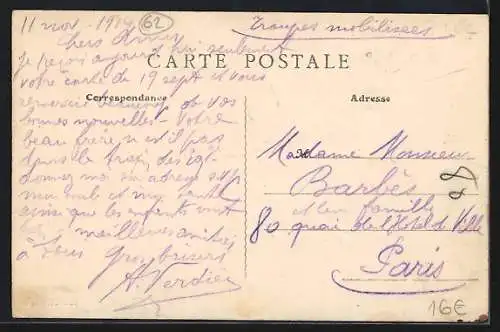 11 nov. 1914
62
Troupes mobilisées
Chers Amis
Je reçois aujourd'hui seulement
CARTE POSTALE
votre carte de 19 sept et vous
Correspondance
Adresse
remercie beaucoup de vos
bonnes nouvelles - Votre
beau frère n'est il pas
dans le
donnez moi son adresse
M
Madame Monsieur
Barbès
et leur famille
ainsi que les enfants vont
80 quai de l'Hotel de Ville
meilleures amitiés
à vous Gros baisers
Paris
A. Verdier
16€